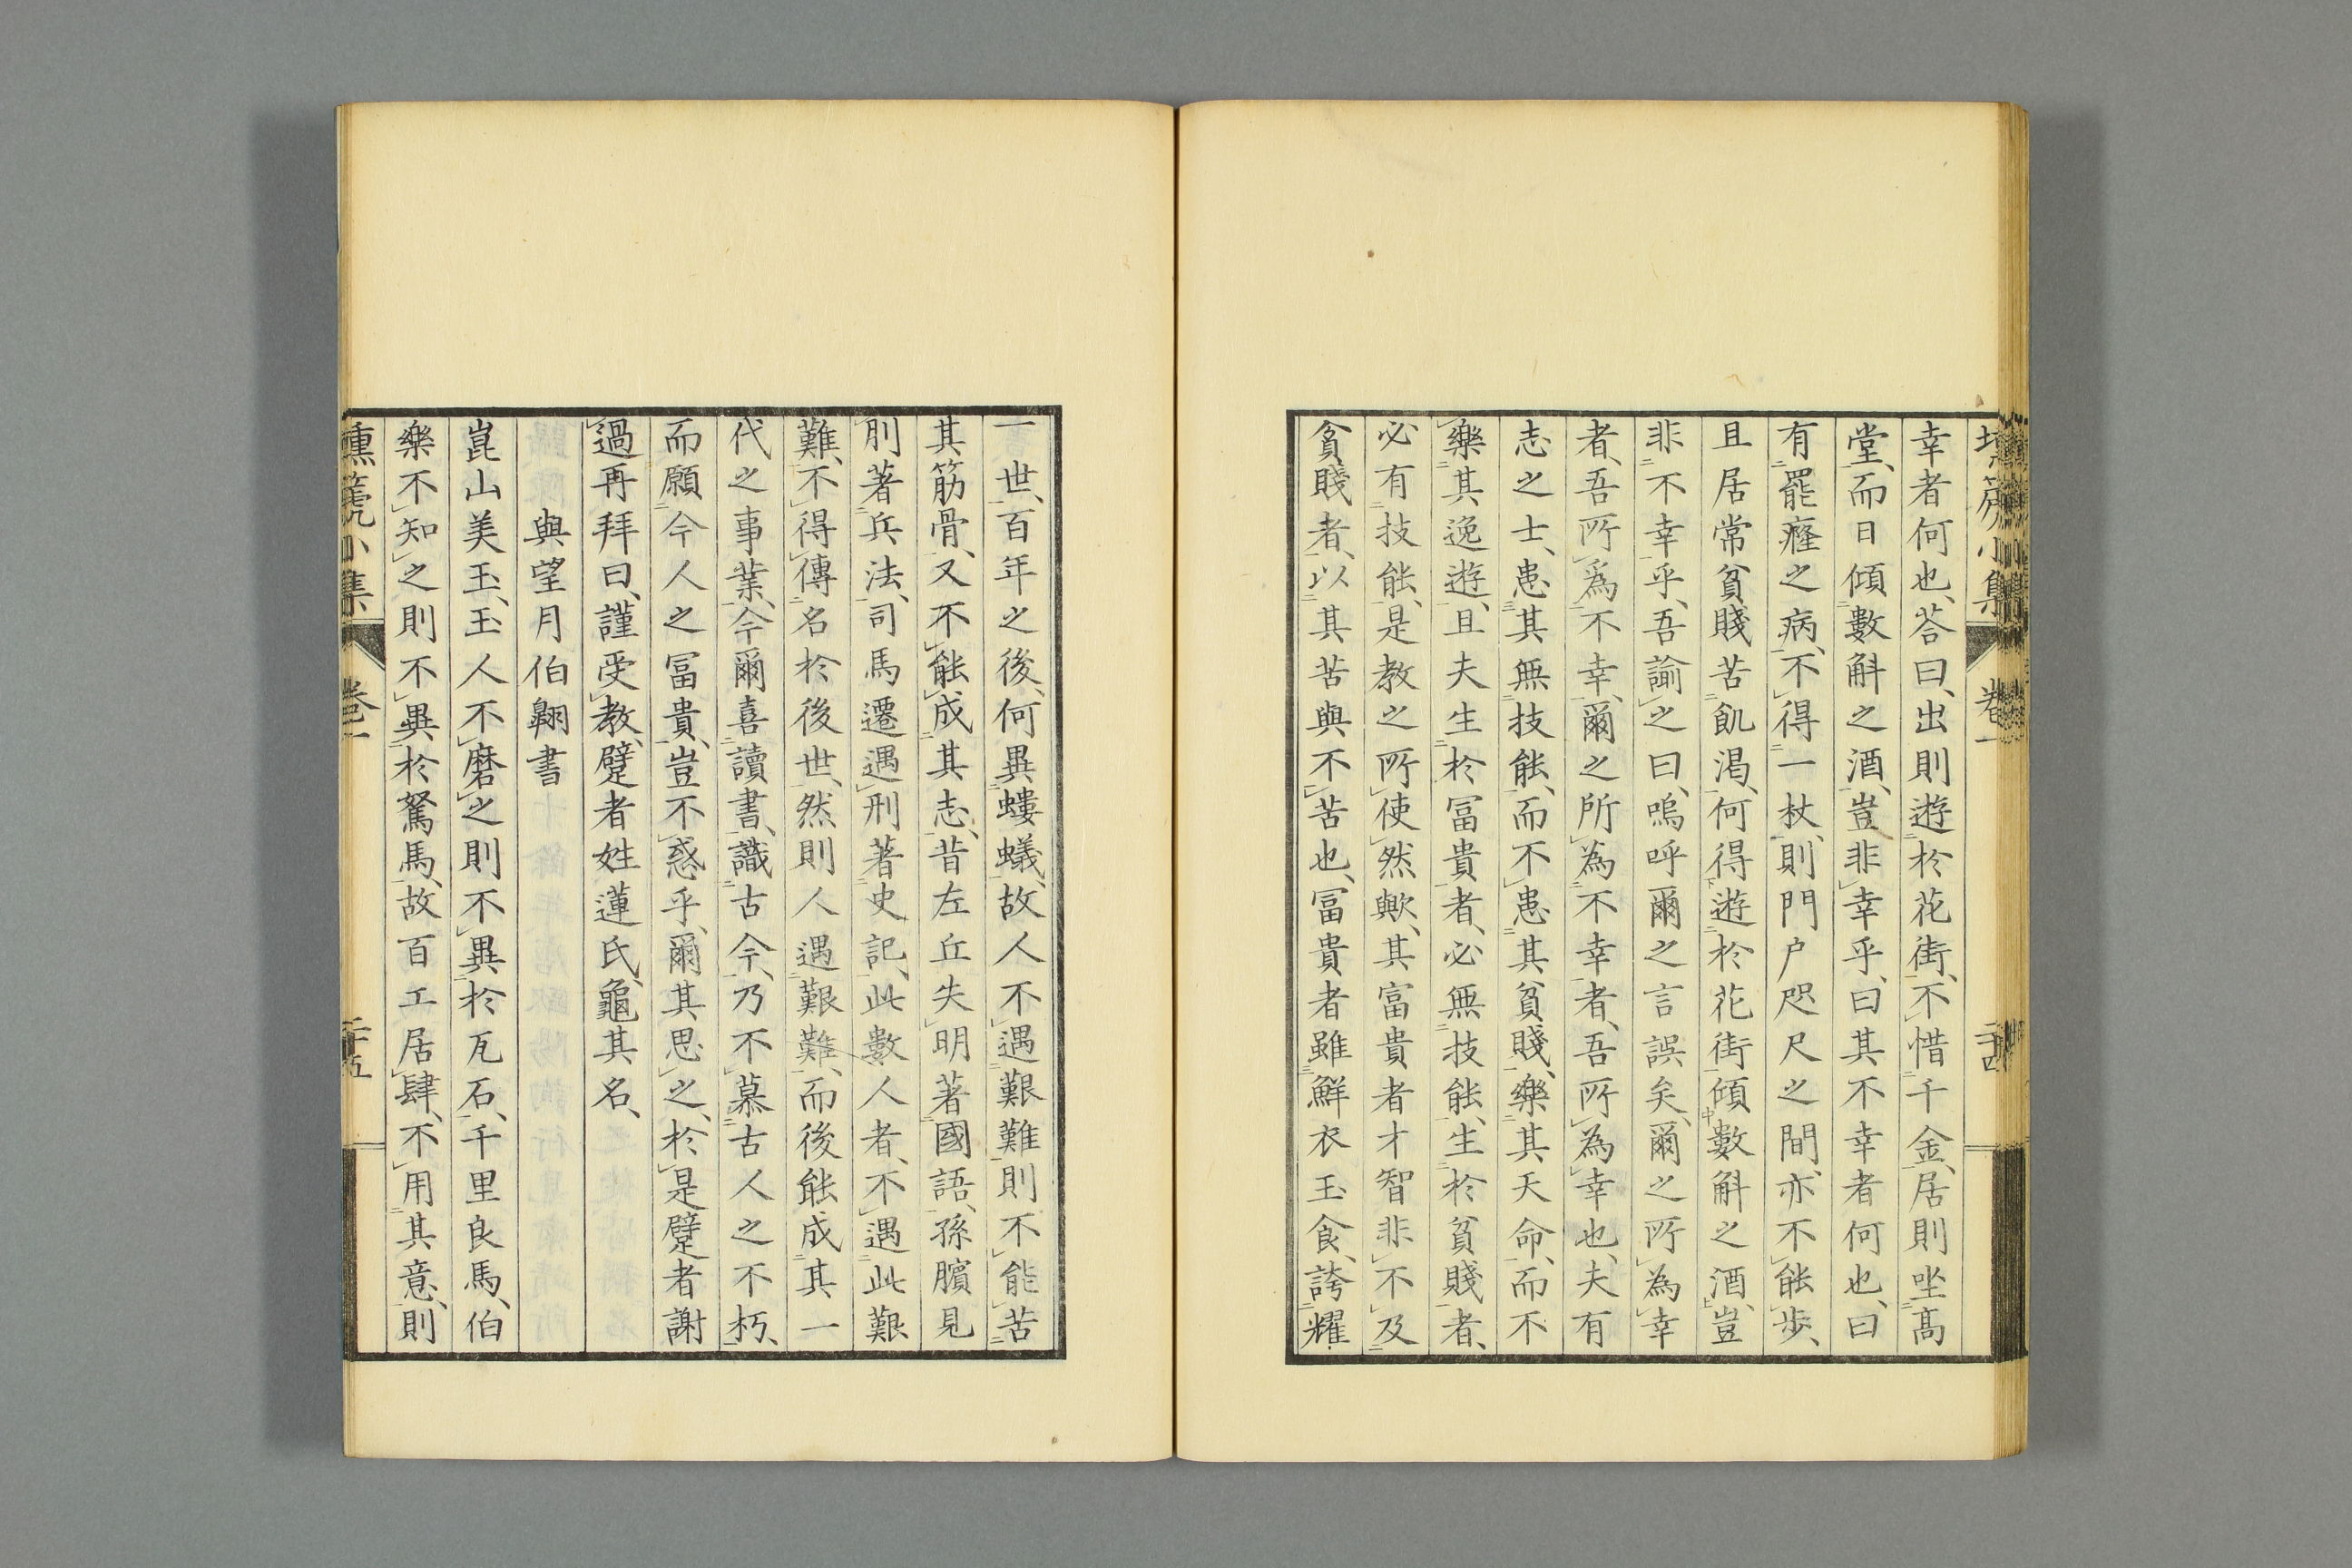 幸者何也、荅曰、出則遊於花街、不惜千金、居則坐髙
堂、而日傾數斛之酒、豈非幸乎、曰其不幸者何也、曰
有罷癃之病、不得一杖、則門户咫尺之間、亦不能歩、
且居常貧賤苦飢渇、何得遊於花街傾數斛之酒、豈
非不幸乎、吾諭之曰、嗚呼爾之言誤矣、爾之所為幸
者、吾所爲不幸、爾之所為不幸者、吾所為幸也、夫有
志之士、患其無技能、而不患其貧賤、樂其天命、而不
樂其逸遊、且夫生於冨貴者、必無技能、生於貧賤者、
必有技能、是教之所使然歟、其富貴者才智非不及
貧賤者、以其苦與不苦也、冨貴者雖鮮衣玉食、誇耀
一世、百年之後、何異螻蟻、故人不遇艱難則不能苦
其筋骨、又不能成其志、昔左丘失明著國語、孫臏見
刖著兵法、司馬遷遇刑著史記、此數人者、不遇此艱
難、不得傳名於後世、然則人遇艱難、而後能成其一
代之事業、今爾喜讀書、識古今、乃不慕古人之不朽、
而願今人之冨貴、豈不惑乎、爾其思之、於是躄者謝
過再拜曰、謹受教、躄者姓蓮氏、龜其名、
與望月伯翺書
崑山美玉、玉人不磨之則不異於瓦石、千里良馬、伯
樂不知之則不異於駑馬、故百工居肆、不用其意、則
卷一